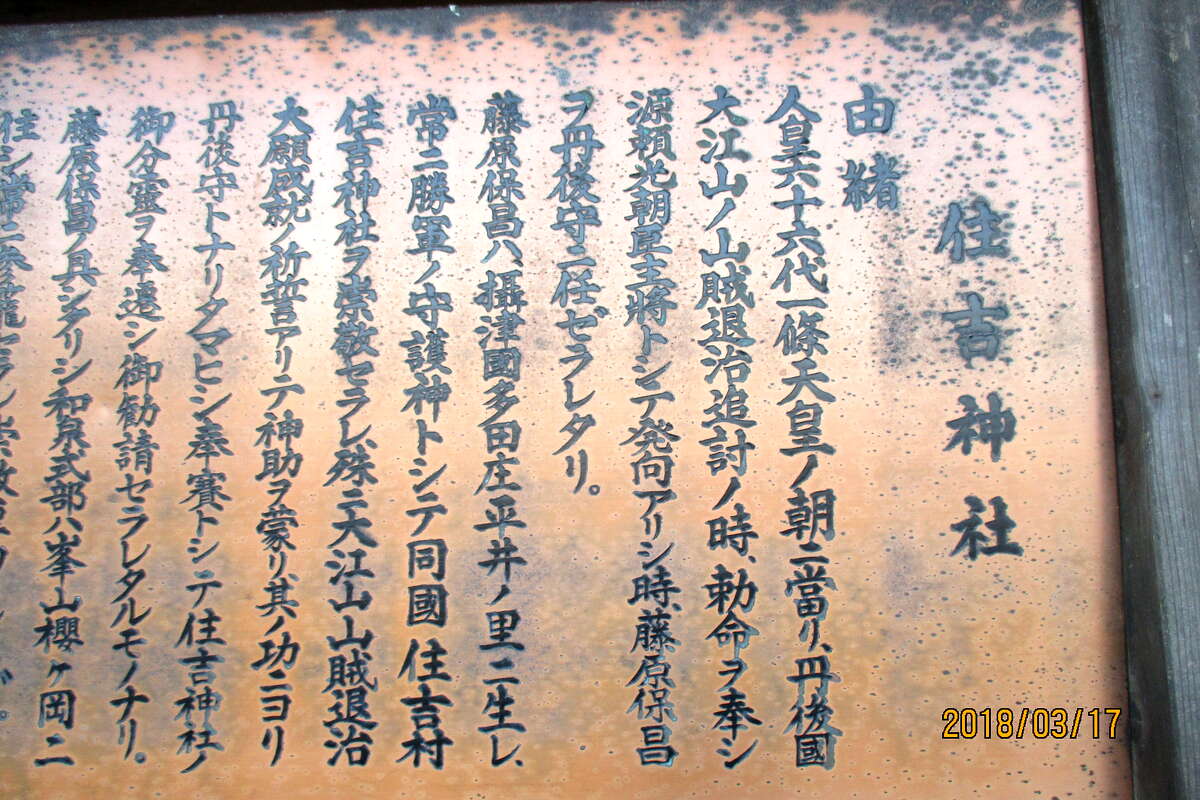 住吉神社
由緒
人皇六十六代一條天皇ノ朝ニ當リ、丹後國
大江山ノ山賊退治追討ノ時、勅命ヲ奉シ
源頼光朝臣主將トシテ発向アリシ時、藤原保昌
ヲ丹後守ニ任ゼラレタリ。
藤原保昌ハ攝津國多田庄平井ノ里ニ生レ、
常ニ勝軍ノ守護神トシテ同國住吉村
住吉神社ヲ崇敬セラレ、殊ニ大江山山賊退治
大願成就ノ祈誓アリテ神助ヲ蒙リ、其ノ功ニヨリ
丹後守トナリタマヒシ奉賽トシテ住吉神社ノ
御分霊ヲ奉遷シ御勧請セラレタルモノナリ。
藤原保昌ノ具シタリシ和泉式部ハ峯山櫻ヶ岡ニ
住シ常ニ参籠セラレ崇敬
2018/03/17